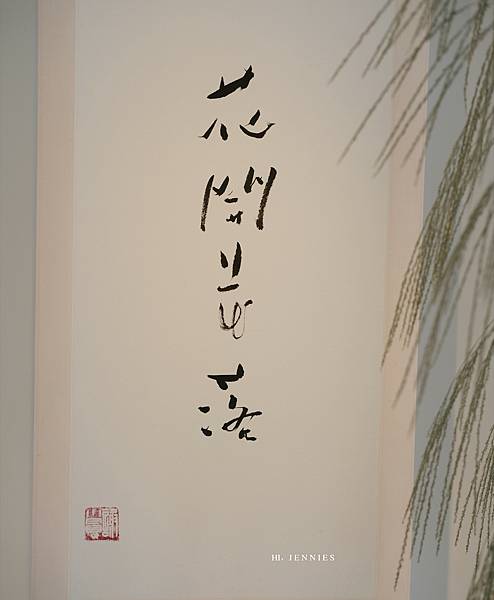 花開落
HI, JENNIES